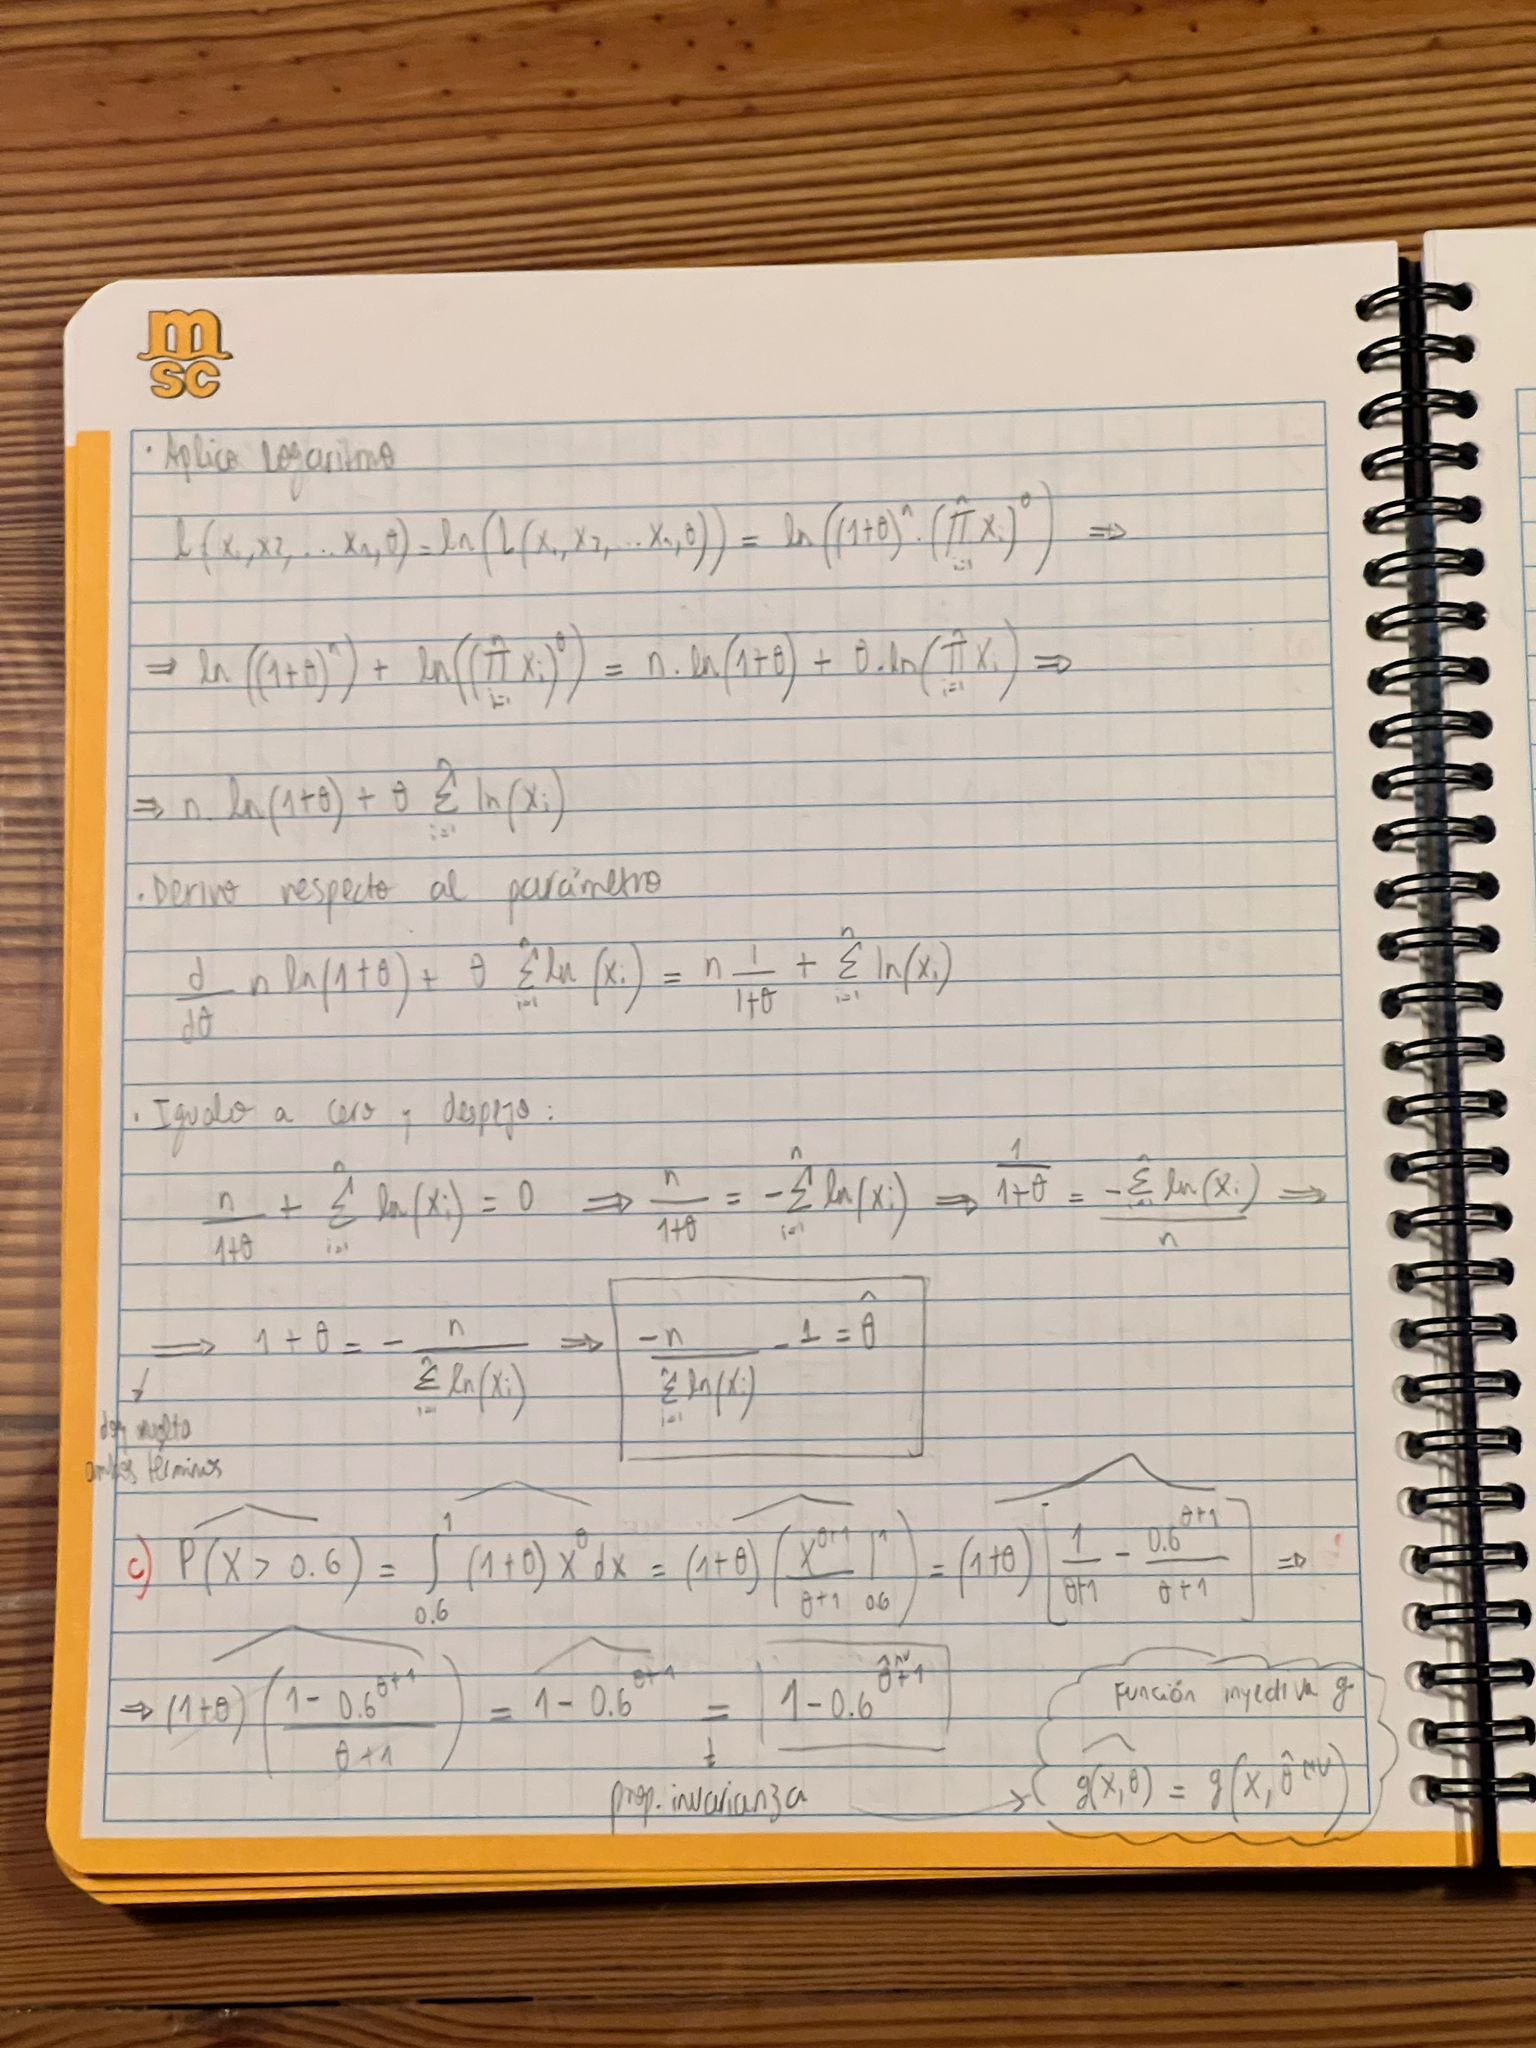 m
sc
· Aplico logaritmo
l(x₁, x₂, ... xₙ, θ) = ln(L(x₁, x₂, ... xₙ, θ)) = ln((1+θ)ⁿ · (∏ᵢ₌₁ⁿ xᵢ)^θ) ⇒
⇒ ln((1+θ)ⁿ) + ln((∏ᵢ₌₁ⁿ xᵢ)^θ) = n · ln(1+θ) + θ · ln(∏ᵢ₌₁ⁿ xᵢ) ⇒
⇒ n · ln(1+θ) + θ ∑ᵢ₌₁ⁿ ln(xᵢ)
· Derivo respecto al parámetro
d/dθ n ln(1+θ) + θ ∑ᵢ₌₁ⁿ ln(xᵢ) = n 1/(1+θ) + ∑ᵢ₌₁ⁿ ln(xᵢ)
· Igualo a cero y despejo:
n/(1+θ) + ∑ᵢ₌₁ⁿ ln(xᵢ) = 0 ⇒ n/(1+θ) = -∑ᵢ₌₁ⁿ ln(xᵢ) ⇒ 1/(1+θ) = -∑ᵢ₌₁ⁿ ln(xᵢ)/n ⇒
⇒ 1 + θ = - n/∑ᵢ₌₁ⁿ ln(xᵢ) ⇒ -n/∑ᵢ₌₁ⁿ ln(xᵢ) - 1 = θ̂
↓
doy vuelta
ambos términos
c) P(X > 0.6) = ∫₀.₆¹ (1+θ) x^θ dx = (1+θ) (x^(θ+1)/(θ+1) |₀.₆¹) = (1+θ) [1/(θ+1) - 0.6^(θ+1)/(θ+1)] ⇒
⇒ (1+θ) ((1 - 0.6^(θ+1))/(θ+1)) = 1 - 0.6^(θ+1) = 1 - 0.6^(θ̂^MV+1)
↓
prop. invarianza →
Función inyectiva g.
g(x, θ) = g(x, θ̂^MV)